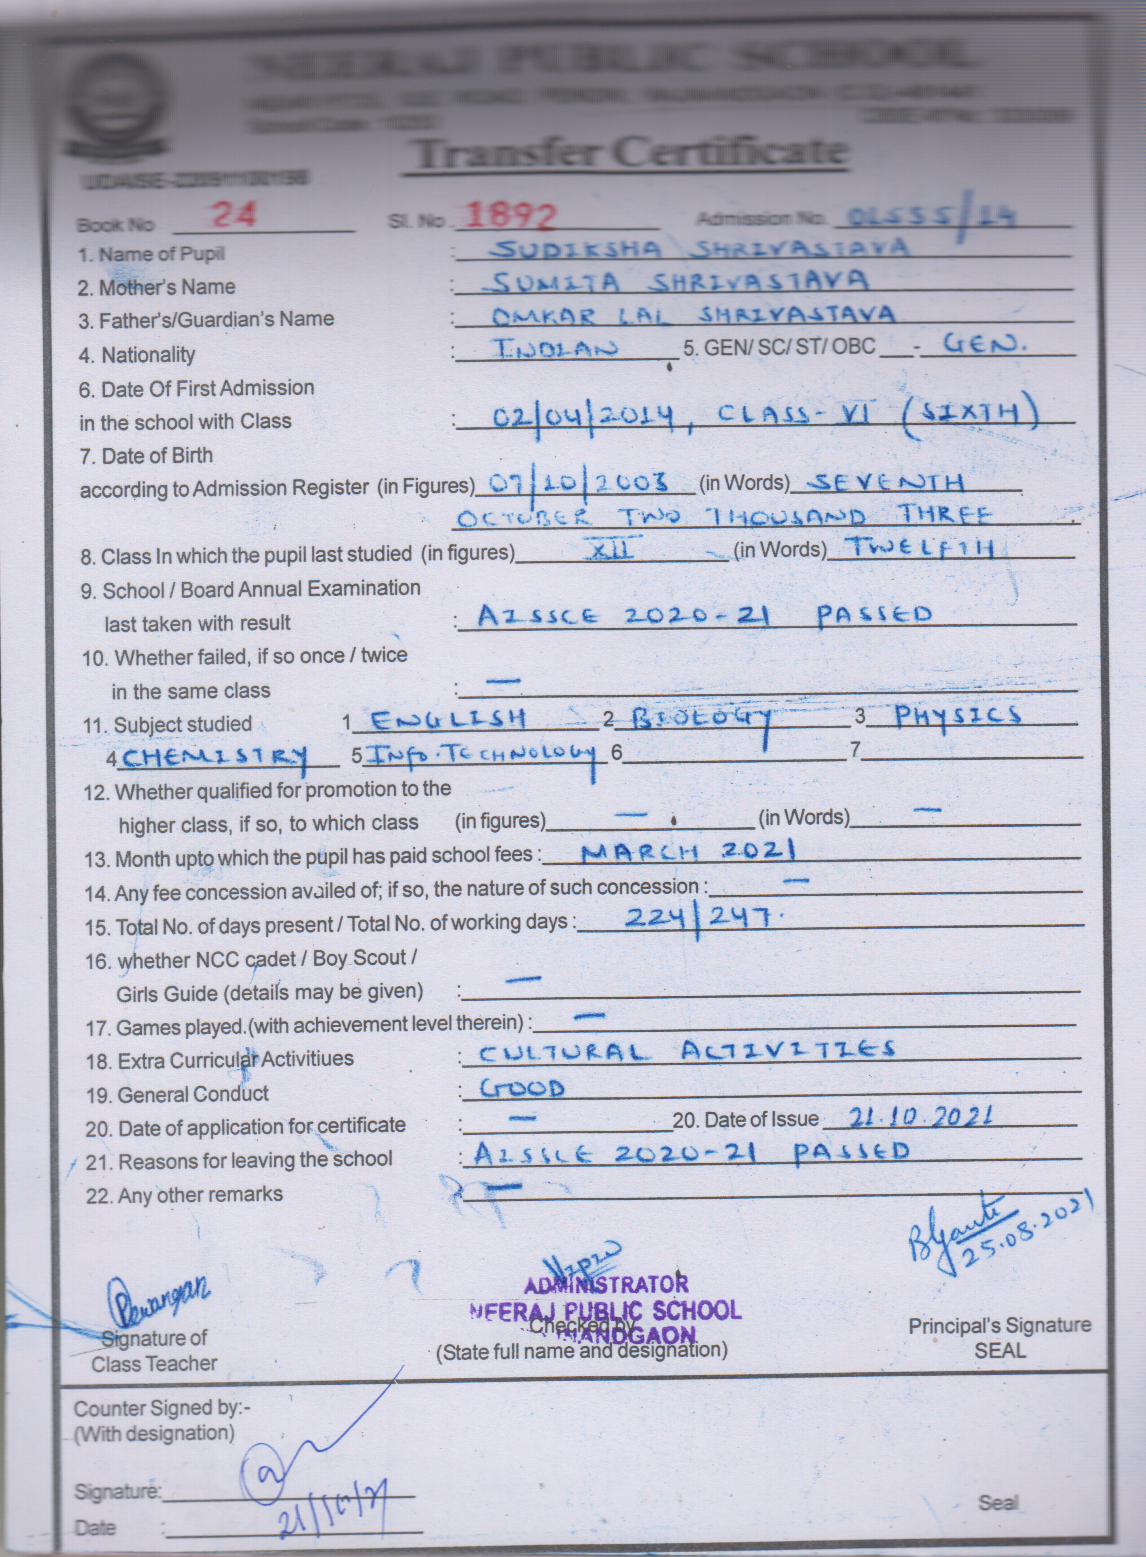 NEERAJ PUBLIC SCHOOL
Transfer Certificate
Book No 24 Sl. No. 1892 Admission No.
1. Name of Pupil : SUDIKSHA SHRIVASTAVA
2. Mother's Name : SUMITA SHRIVASTAVA
3. Father's/Guardian's Name : OMKAR LAL SHRIVASTAVA
4. Nationality : INDIAN 5. GEN/ SC/ ST/ OBC - GEN.
6. Date Of First Admission
in the school with Class : 02/04/2014, CLASS-VI (SIXTH)
7. Date of Birth
according to Admission Register (in Figures) 07/10/2003 (in Words) SEVENTH
OCTOBER TWO THOUSAND THREE
8. Class In which the pupil last studied (in figures) XII (in Words) TWELFTH
9. School / Board Annual Examination
last taken with result : AISSCE 2020-21 PASSED
10. Whether failed, if so once / twice
in the same class : —
11. Subject studied 1 ENGLISH 2 BIOLOGY 3 PHYSICS
4 CHEMISTRY 5 INFO.TECHNOLOGY 6 7
12. Whether qualified for promotion to the
higher class, if so, to which class (in figures) — (in Words) —
13. Month upto which the pupil has paid school fees : MARCH 2021
14. Any fee concession availed of; if so, the nature of such concession : —
15. Total No. of days present / Total No. of working days : 224/247.
16. whether NCC cadet / Boy Scout /
Girls Guide (details may be given) : —
17. Games played.(with achievement level therein) : —
18. Extra Curricular Activitiues : CULTURAL ACTIVITIES
19. General Conduct : GOOD
20. Date of application for certificate : — 20. Date of Issue 21.10.2021
21. Reasons for leaving the school : AISSCE 2020-21 PASSED
22. Any other remarks : —
25.08.2021
Dewangan
ADMINISTRATOR
NEERAJ PUBLIC SCHOOL
Checked by
Signature of
Class Teacher
(State full name and designation)
Principal's Signature
SEAL
Counter Signed by:-
(With designation)
Signature:
Date : 21/10/21
Seal